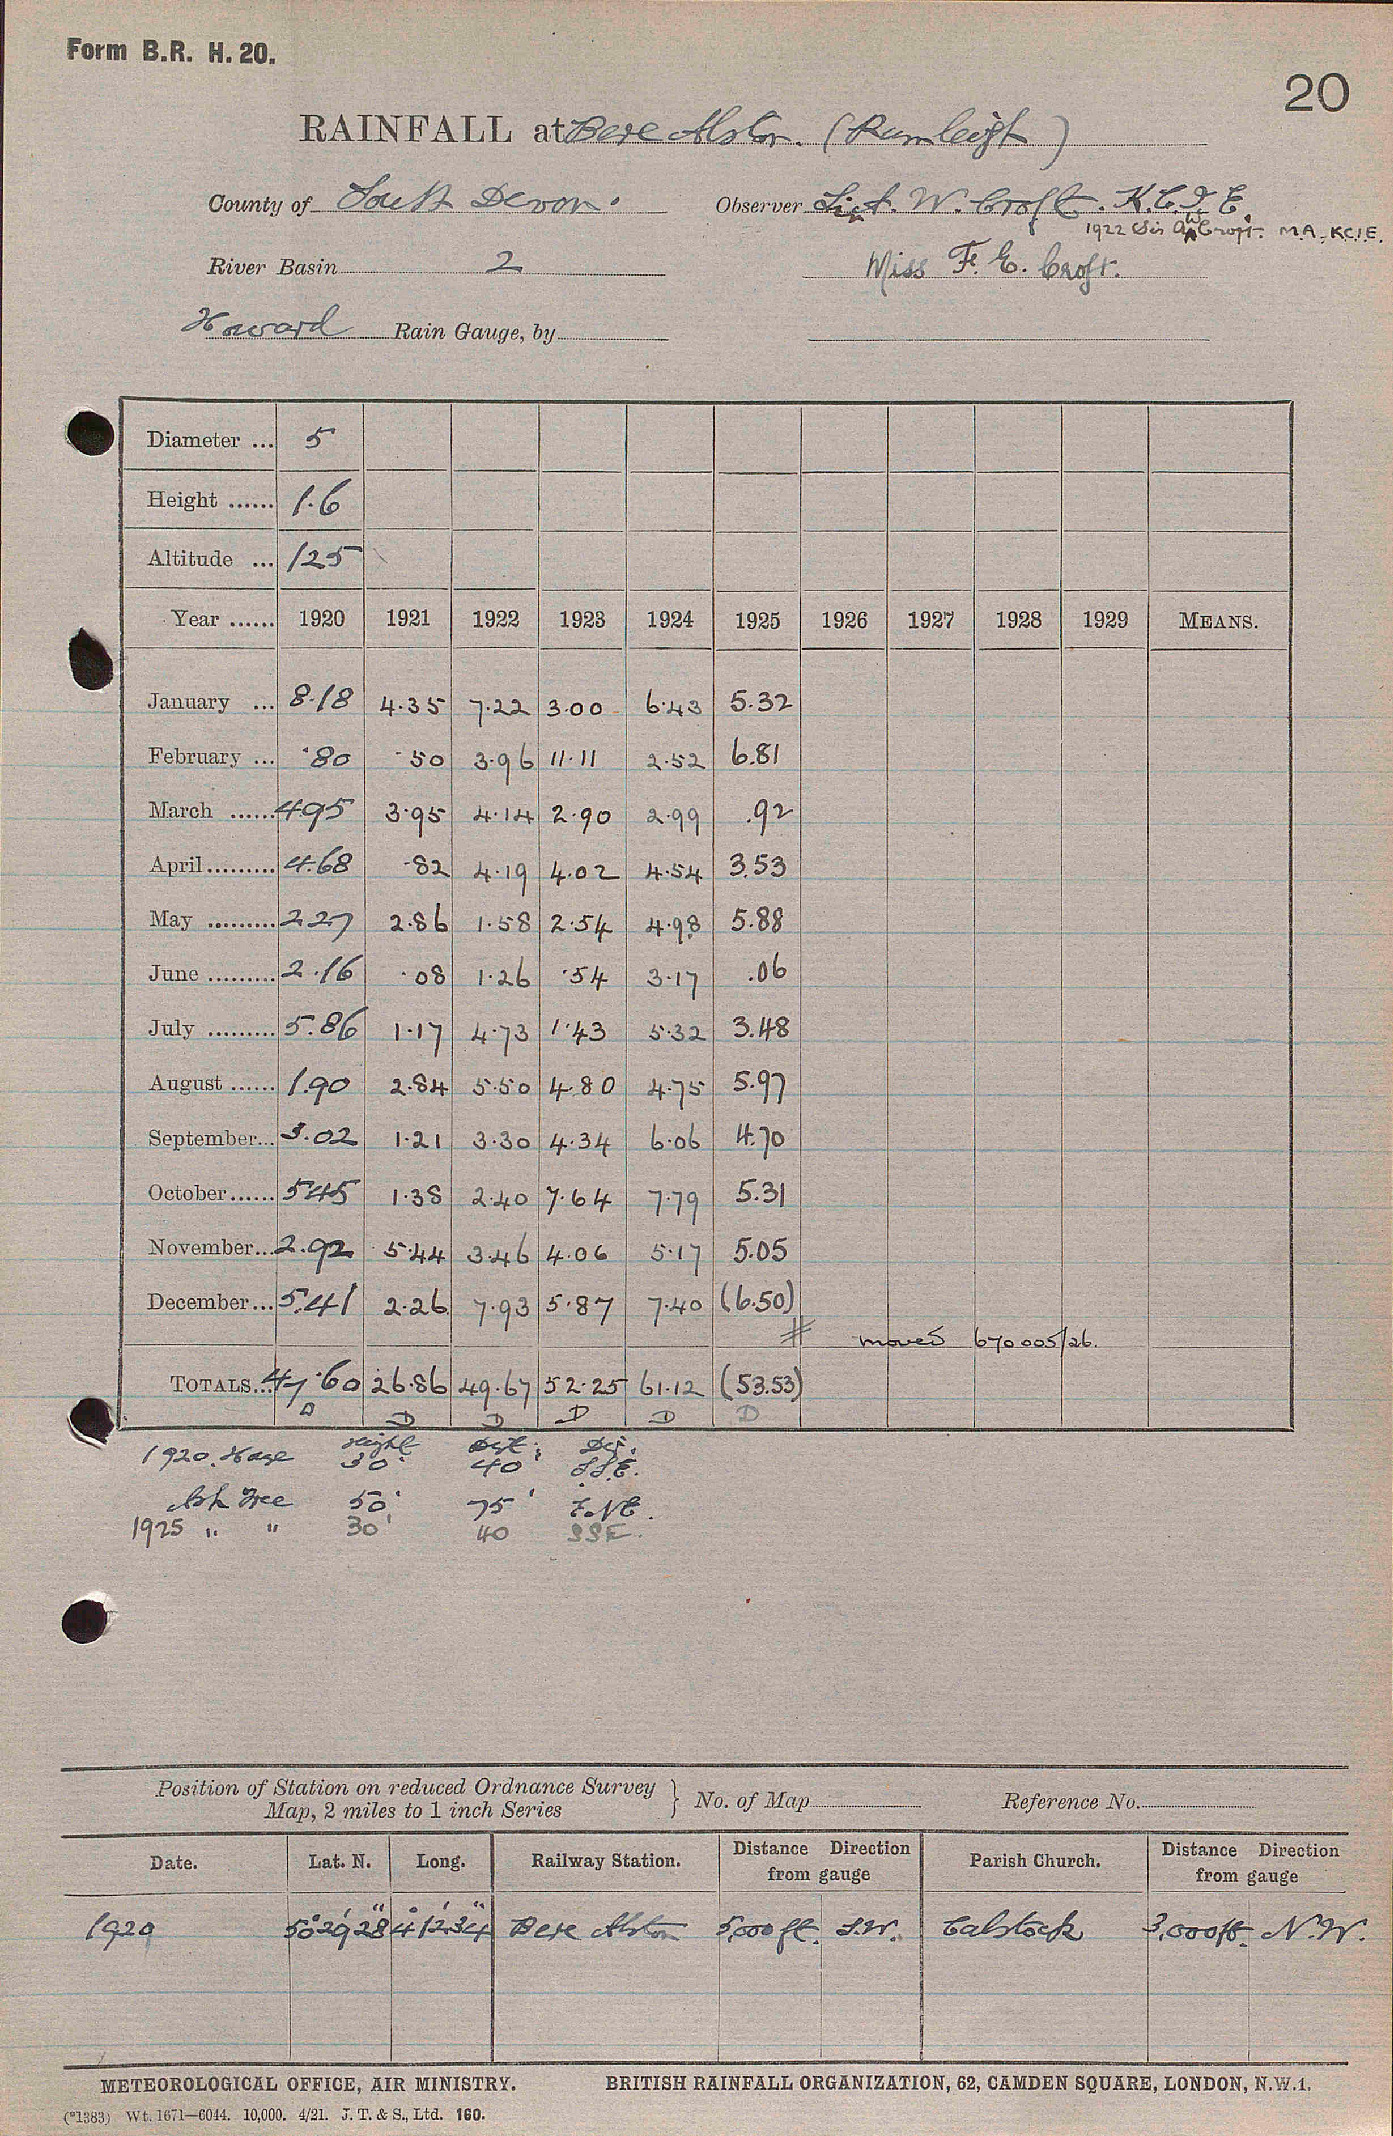 Form B.R. H. 20.
20
RAINFALL at Bere Alston. (Rumleigh)
County of South Devon. Observer Sir A. W. Croft. K.C.I.E.
1922 Sir A W Croft. M.A., K.C.I.E.
River Basin 2 Miss F. E. Croft.
Howard Rain Gauge, by
Diameter ... 5
Height ...... 1.6
Altitude ... 125
Year ...... 1920 1921 1922 1923 1924 1925 1926 1927 1928 1929 MEANS.
January ... 8.18 4.35 7.22 3.00 6.43 5.32
February ... .80 .50 3.96 11.11 2.52 6.81
March ...... 4.95 3.95 4.14 2.90 2.99 .92
April ......... 4.68 .82 4.19 4.02 4.54 3.53
May ......... 2.27 2.86 1.58 2.54 4.98 5.88
June ......... 2.16 .08 1.26 .54 3.17 .06
July ......... 5.86 1.17 4.73 1.43 5.32 3.48
August ...... 1.90 2.84 5.50 4.80 4.75 5.97
September... 3.02 1.21 3.30 4.34 6.06 4.70
October...... 5.45 1.38 2.40 7.64 7.79 5.31
November... 2.92 5.44 3.46 4.06 5.17 5.05
December... 5.41 2.26 7.93 5.87 7.40 (6.50)
# moved 670005/26.
TOTALS... 47.60 26.86 49.67 52.25 61.12 (53.53)
D D D D D D
Height Dist. Dir.
1920. House 30' 40' SSE.
Ash Tree 50' 75' E.NE.
1925 " " 30' 40 SSE.
Position of Station on reduced Ordnance Survey
Map, 2 miles to 1 inch Series } No. of Map Reference No.
Date. Lat. N. Long. Railway Station. Distance Direction from gauge Parish Church. Distance Direction from gauge
1920 50° 29' 28" 4° 12' 34" Bere Alston 5,000 ft. S.W. Calstock 3,000 ft. N.W.
METEOROLOGICAL OFFICE, AIR MINISTRY. BRITISH RAINFALL ORGANIZATION, 62, CAMDEN SQUARE, LONDON, N.W.1.
(*1383) Wt. 1671—6044. 10,000. 4/21. J. T. & S., Ltd. 160.